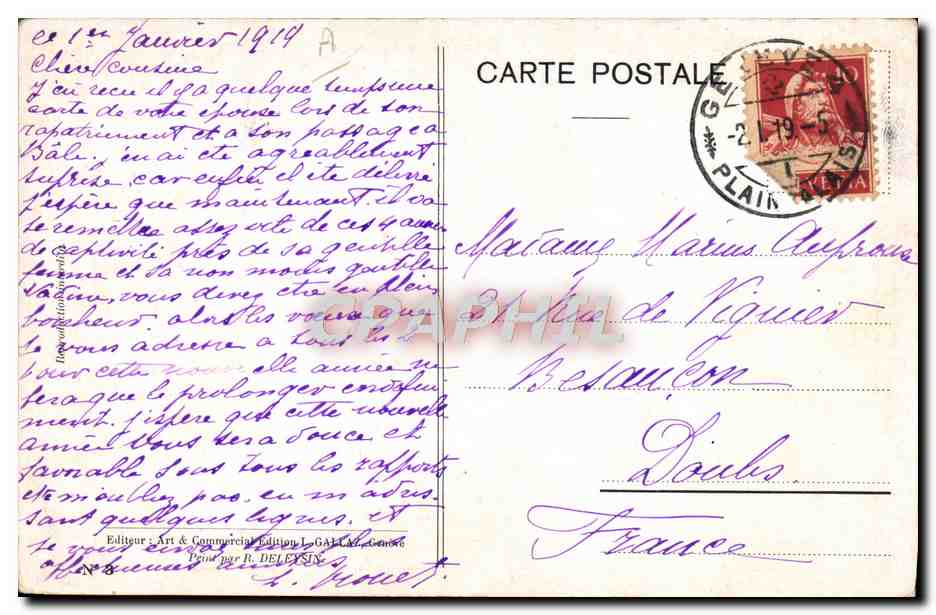 ce 1er Janvier 1919
A
Chère cousine
J'ai recu il y a quelque temps une
carte de votre epouse lors de son
rapatriement et a son passage a
Bâle, j'en ai ete agreablement
suprise, car enfin il ete delivre
j'espère que maintenant il va
se remettre assez vite de ces 4 annees
de captivité près de sa gentille
femme et sa non moins gentille
vous devez etre en plein
bonheur. alors les voeux que
je vous adresse a tous les
pour cette nouvelle année ne
fera que le prolonger
ment. j'espere que cette nouvelle
année vous sera douce et
favorable sous tous les rapports
et m'oubliez pas, en m'adres-
sant quelques lignes. et
je vous envoie
affectueuses amitiés
Reproduction interdite
Editeur : Art & Commercial Edition L. GALLAY, Genève
Peint par R. DELEYSIN
N° 3
CARTE POSTALE
GENÈVE
-2.I.19-5
PLAINPALAIS
HELVETIA
Madame Marius
21 Rue de Vignier
Besançon
Doubs
France
CPAPHIL